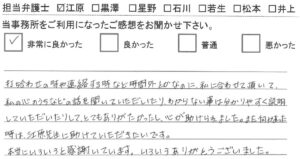 担当弁護士 ☑江原 □黒澤 □星野 □石川 □若生 □松本 □井上
当事務所をご利用になったご感想をお聞かせ下さい。
☑ 非常に良かった □ 良かった □ 普通 □ 悪かった
打合わせの時や連絡する時など時間外とかなのに、私に合わせて頂いて、
私の心のうちなどの話を聞いていただいたり、わからない事は分かりやすく説明
していただいたりして、とてもありがたかったし、心が助けられました。また何かあった
時は、江原先生に助けていただきたいです。
本当にいろいろと感謝しています。いろいろありがとうございました。